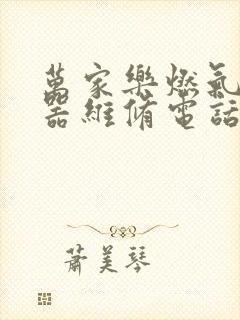 萬家樂燃氣
器維脩電話
蕭美琴